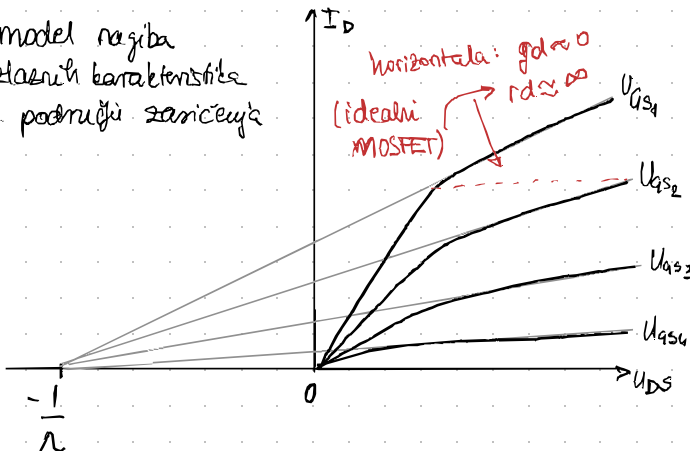 model nagiba
izlaznih karakteristika
području zasićenja
I_D
horizontala: gd ≈ 0
rd ≈ ∞
(idealni
MOSFET)
U_GS1
U_GS2
U_GS3
U_GS4
U_DS
0
-1/λ